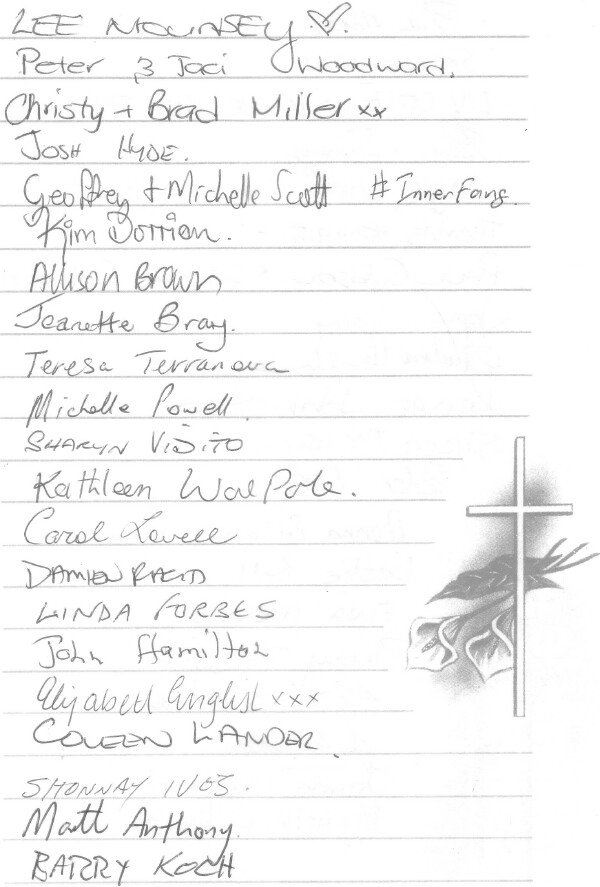 LEE MOUNSEY
Peter & Jaci Woodward.
Christy + Brad Miller xx
JOSH HYDE.
Geoffrey + Michelle Scott #InnerFang.
Kim Dorrian.
Allison Brown
Jeanette Bray.
Teresa Terranova
Michelle Powell.
SHARYN VIDITO
Kathleen Walpole.
Carol Lovell
DAMIEN
LINDA FORBES
John Hamilton
Elizabeth English xxx
COLEEN LANDER.
SHONNAY IVES.
Matt Anthony.
BARRY KOCH